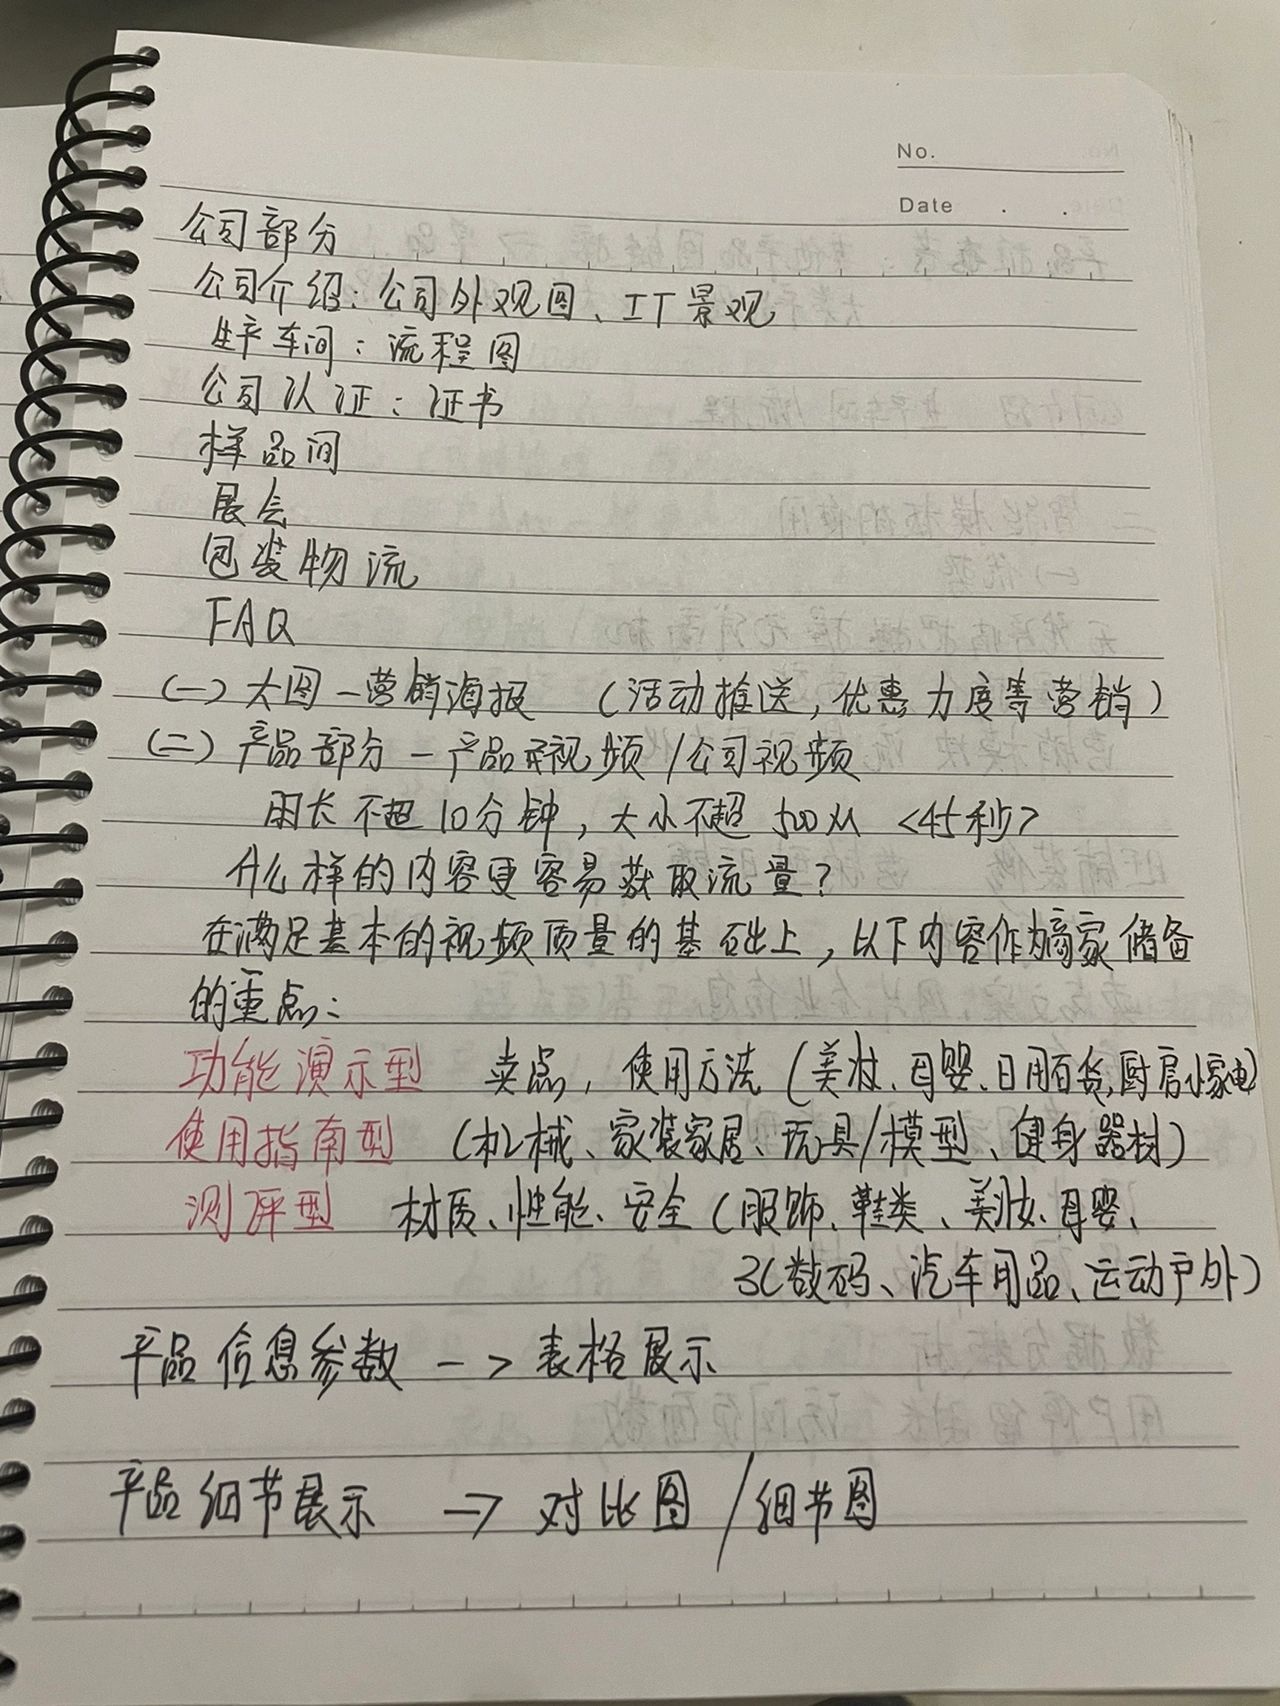 No.
Date . .
公司部分
公司介绍:公司外观图、工厂景观
生产车间:流程图
公司认证:证书
样品间
展会
包装物流
FAQ
(一)大图一营销海报 (活动推送,优惠力度等营销)
(二)产品部分一产品视频/公司视频
时长不超10分钟,大小不超500M <45秒>
什么样的内容更容易获取流量?
在满足基本的视频质量的基础上,以下内容作为商家储备
的重点:
功能演示型 卖点,使用方法(美妆、母婴、日用百货,厨房小家电)
使用指南型 (机械、家装家居、玩具/模型、健身器材)
测评型 材质、性能、安全(服饰、鞋类、美妆、母婴、
3C数码、汽车用品、运动户外)
产品信息参数 --> 表格展示
产品细节展示 —> 对比图/细节图